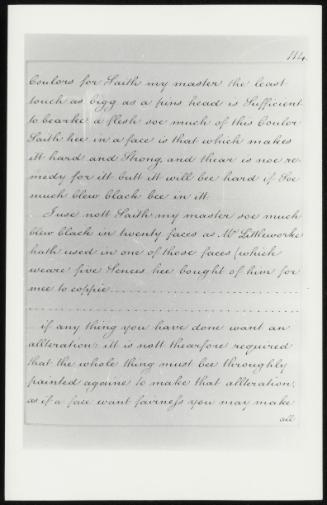 114.
Coulors for Saith my master the least
touch as bigg as a pins head is Sufficient
to bearke a flesh soe much of this Coulor
Saith hee in a face is that which makes
itt hard and Strong, and theare is noe re-
medy for itt butt itt will bee hard if Soe
much blew black bee in itt.
I use nott Saith my master soe much
blew black in twenty faces as Mr Littleworke
hath used in one of those faces (which
weare five peices hee bought of him for
mee to coppie
if any thing you have done want an
allteration: itt is nott thearfore required
that the whole thing must bee throughly
painted againe to make that allteration;
as if a face want fairness you may make
all